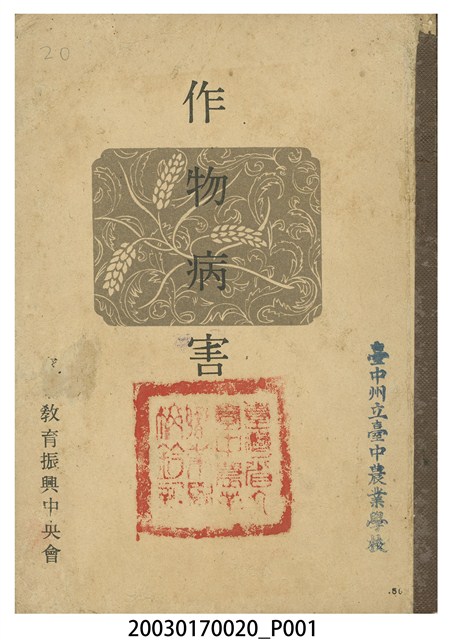 20
作物病害
臺中州立臺中農業學校
教育振興中央會
20030170020_P001